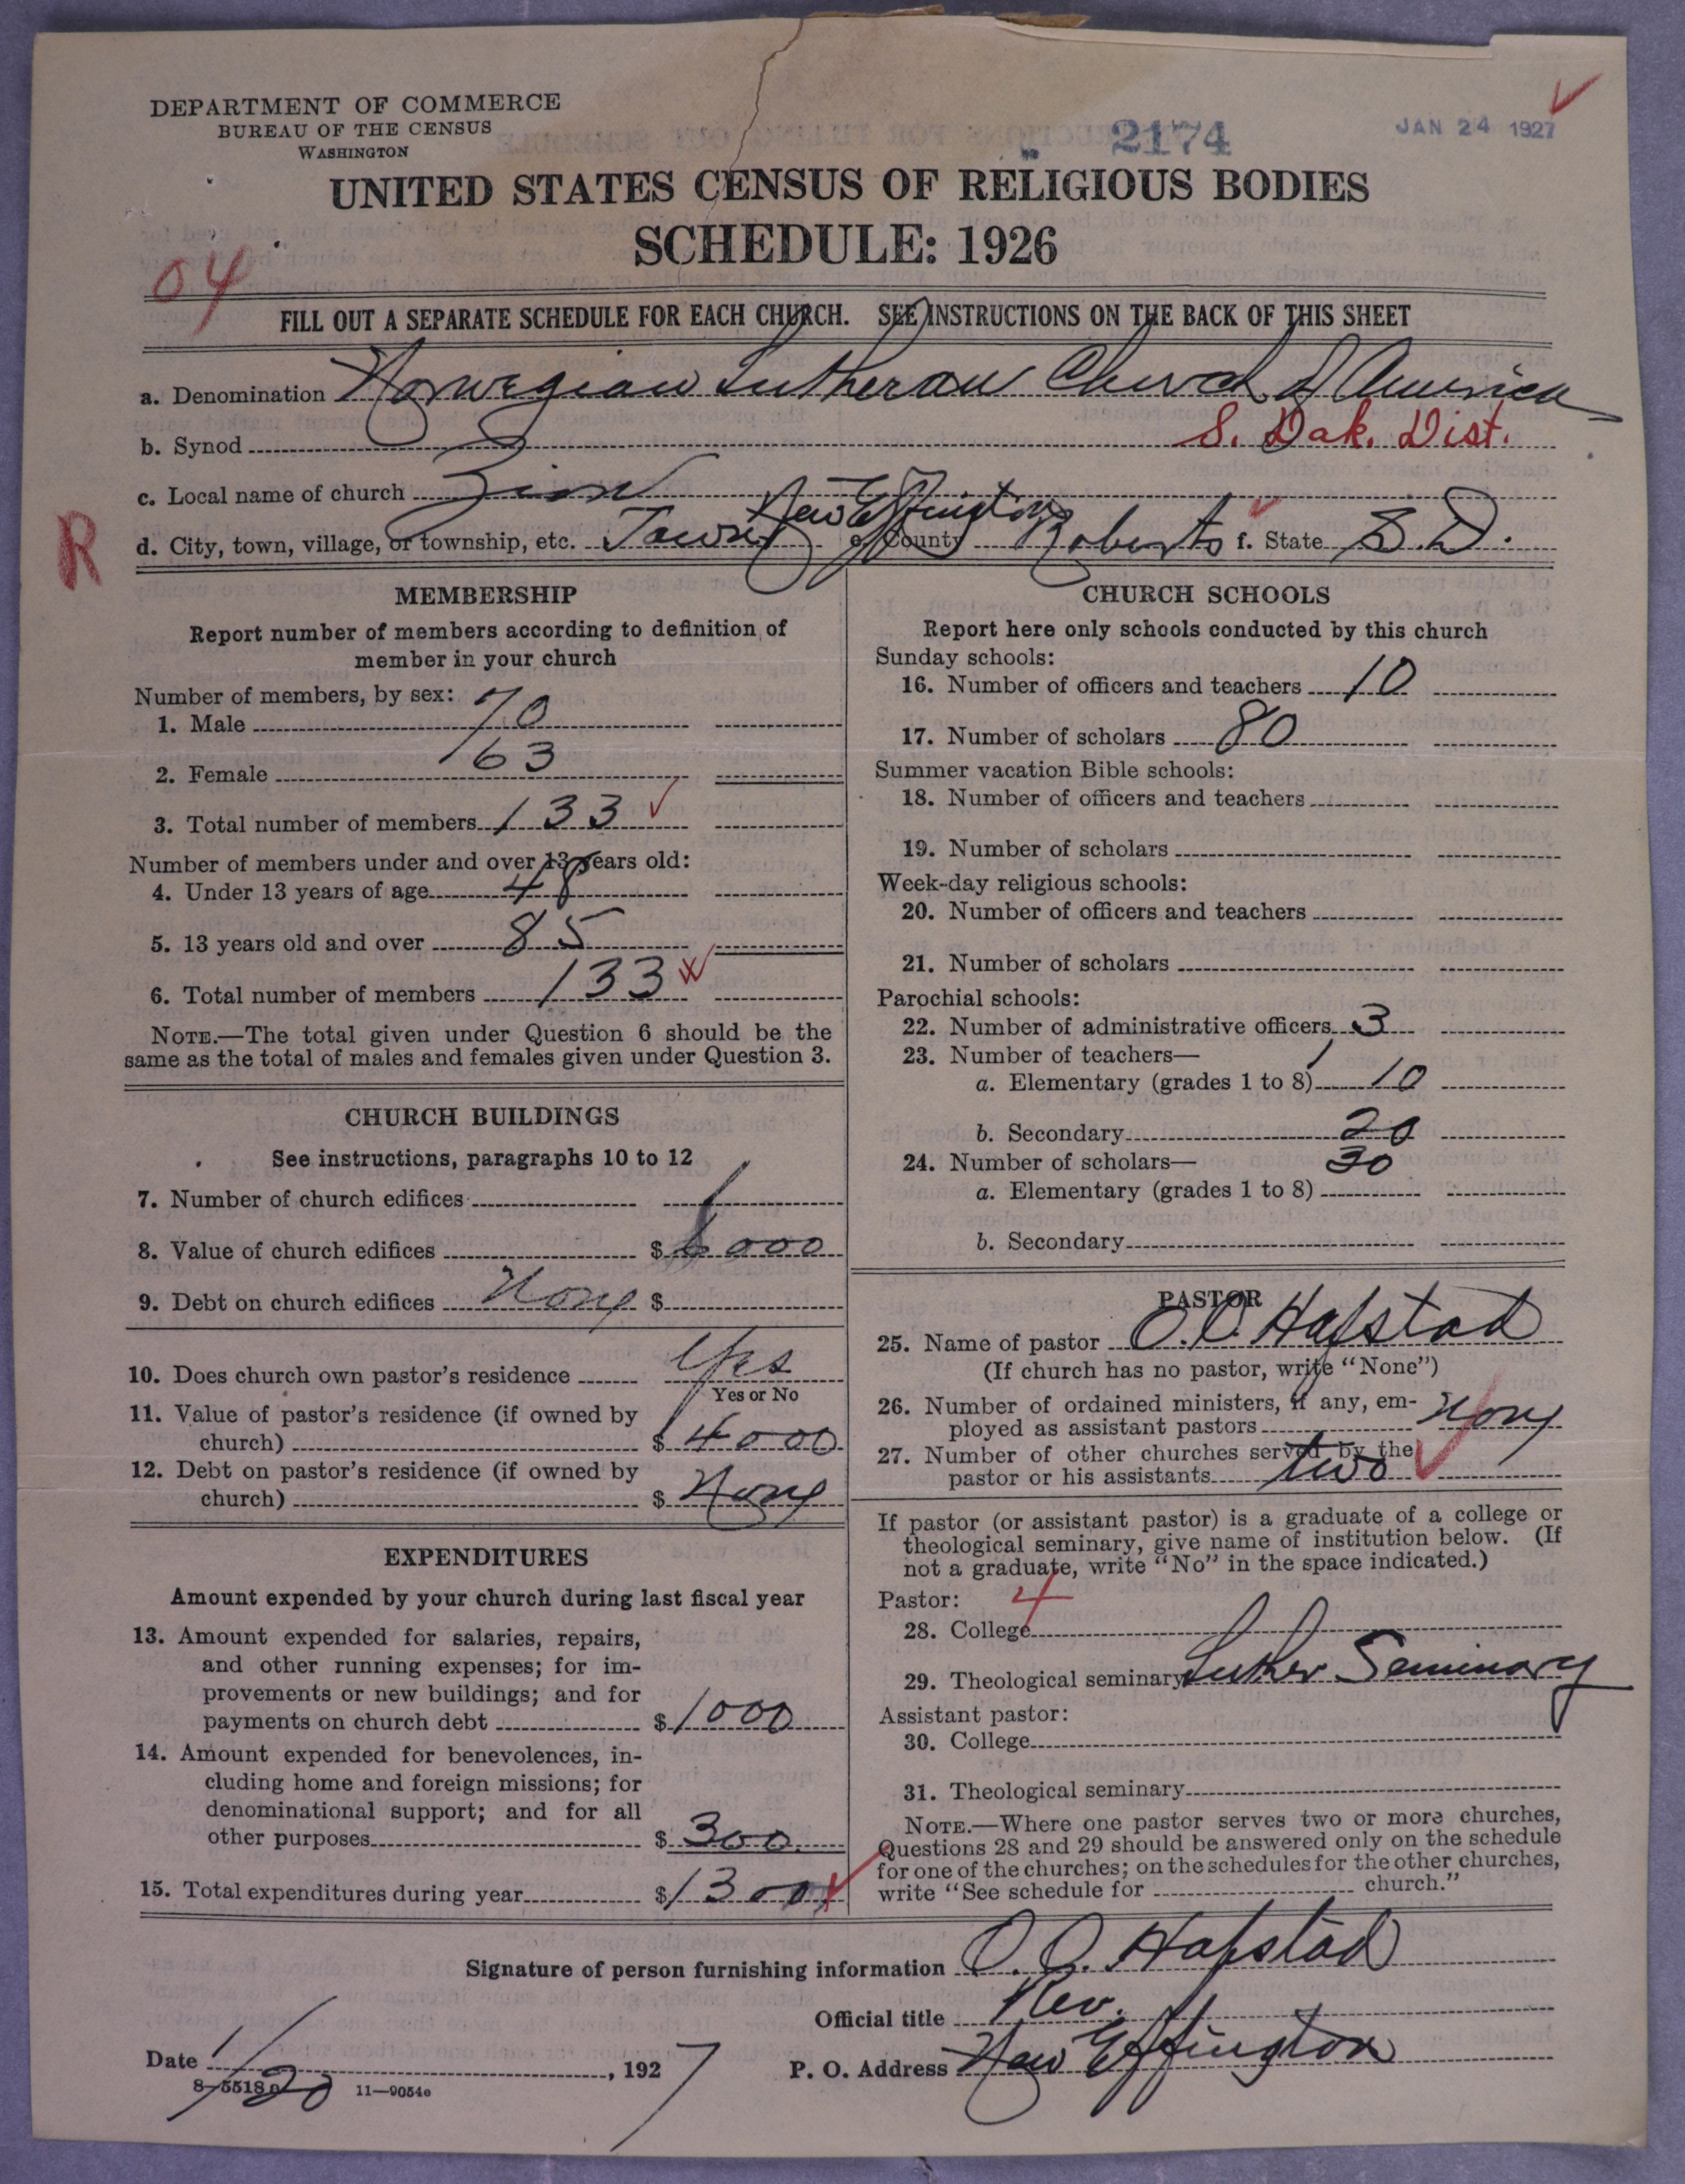 DEPARTMENT OF COMMERCE
BUREAU OF THE CENSUS
WASHINGTON
2174
JAN 24 1927
UNITED STATES CENSUS OF RELIGIOUS BODIES
SCHEDULE: 1926
04
FILL OUT A SEPARATE SCHEDULE FOR EACH CHURCH. SEE INSTRUCTIONS ON THE BACK OF THIS SHEET
a. Denomination Norwegian Lutheran Church of America
b. Synod S. Dak. Dist.
c. Local name of church Zion
R
d. City, town, village, or township, etc. Town of New Effington e. County Roberts f. State S.D.
MEMBERSHIP
Report number of members according to definition of
member in your church
Number of members, by sex:
1. Male 70
2. Female 63
3. Total number of members 133
Number of members under and over 13 years old:
4. Under 13 years of age 48
5. 13 years old and over 85
6. Total number of members 133
NOTE.—The total given under Question 6 should be the
same as the total of males and females given under Question 3.
CHURCH BUILDINGS
See instructions, paragraphs 10 to 12
7. Number of church edifices 1
8. Value of church edifices $ 6000
9. Debt on church edifices None $
10. Does church own pastor's residence Yes
Yes or No
11. Value of pastor's residence (if owned by
church) $ 4000
12. Debt on pastor's residence (if owned by
church) $ None
EXPENDITURES
Amount expended by your church during last fiscal year
13. Amount expended for salaries, repairs,
and other running expenses; for im-
provements or new buildings; and for
payments on church debt $ 1000
14. Amount expended for benevolences, in-
cluding home and foreign missions; for
denominational support; and for all
other purposes $ 300
15. Total expenditures during year $ 1300
CHURCH SCHOOLS
Report here only schools conducted by this church
Sunday schools:
16. Number of officers and teachers 10
17. Number of scholars 80
Summer vacation Bible schools:
18. Number of officers and teachers
19. Number of scholars
Week-day religious schools:
20. Number of officers and teachers
21. Number of scholars
Parochial schools:
22. Number of administrative officers 3
23. Number of teachers— 1
a. Elementary (grades 1 to 8) 10
b. Secondary 20
24. Number of scholars— 30
a. Elementary (grades 1 to 8)
b. Secondary
PASTOR
25. Name of pastor O.O. Hafstad
(If church has no pastor, write "None")
26. Number of ordained ministers, if any, em-
ployed as assistant pastors None
27. Number of other churches served by the
pastor or his assistants two
If pastor (or assistant pastor) is a graduate of a college or
theological seminary, give name of institution below. (If
not a graduate, write "No" in the space indicated.)
Pastor: 4
28. College
29. Theological seminary Luther Seminary
Assistant pastor:
30. College
31. Theological seminary
NOTE.—Where one pastor serves two or more churches,
Questions 28 and 29 should be answered only on the schedule
for one of the churches; on the schedules for the other churches,
write "See schedule for church."
Signature of person furnishing information O. O. Hafstad
Official title Rev.
Date 1/20, 1927
P. O. Address New Effington
8—5518a 11—9054e